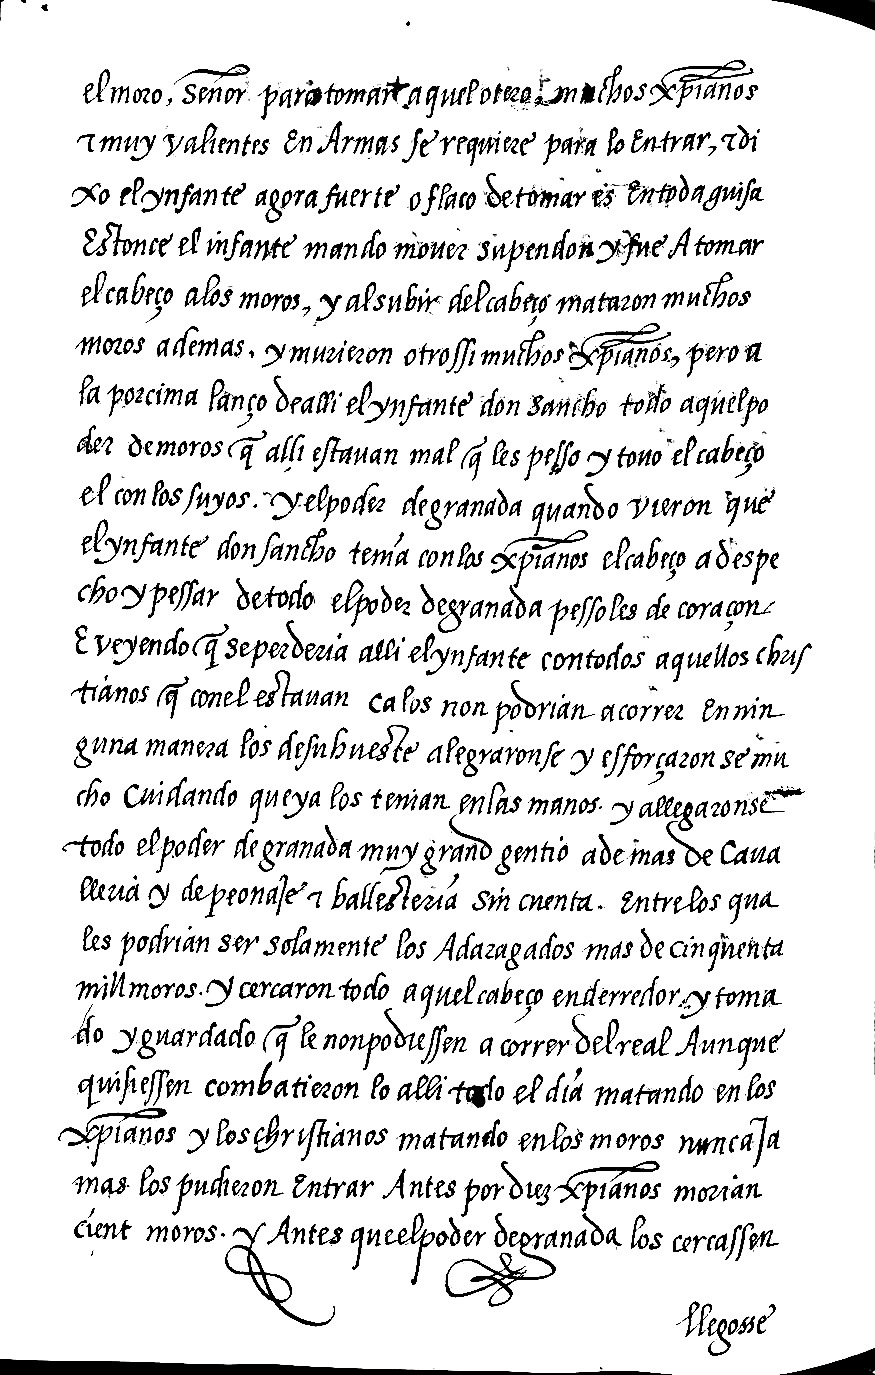 el moro, Señor para tomar aquel otero muchos xp̄ianos
⁊ muy valientes En Armas se requiere para lo Entrar, ⁊ di
xo el ynfante agora fuerte o flaco de tomar es En toda guisa
Estonce el infante mando mover su pendon y fue A tomar
el cabeço a los moros, y al subir del cabeço mataron muchos
moros ademas. y murieron otrossi muchos xp̄ianos, pero a
la porcima lanço de alli el ynfante don Sancho todo aquel po
der de moros q̄ alli estavan mal q̄ les pesso y tovo el cabeço
el con los suyos. Y el poder de granada quando vieron que
el ynfante don sancho tenia con los xp̄ianos el cabeço a despe
cho y pessar de todo el poder de granada pessoles de coraçon
E veyendo q̄ se perderia alli el ynfante con todos aquellos chris
tianos q̄ con el estavan ca los non podrian acorrer En nin
guna manera los de su hueste alegraronse y esforçaron se mu
cho Cuidando que ya los tenian en las manos. y allegaronse
todo el poder de granada muy grand gentio ademas de Cava
lleria y de peonaje ⁊ ballesteria sin cuenta. Entre los qua
les podrian ser solamente los Adaragados mas de cinquenta
mill moros. Y cercaron todo aquel cabeço enderredor. y toma
do y guardado q̄ le non podiessen acorrer del real Aunque
quisiessen combatieron lo alli todo el dia matando en los
xp̄ianos y los christianos matando en los moros nunca Ja
mas los pudieron Entrar Antes por diez xp̄ianos morian
cient moros. y Antes que el poder de granada los cercassen
llegosse